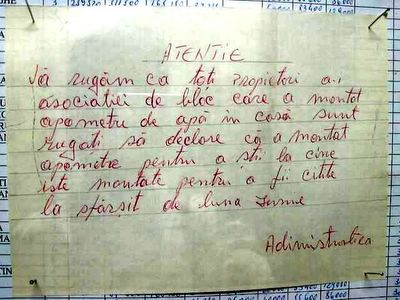 ATENTIE
Vă rugăm ca toți propietori a.i
asociatiei de bloc care a montat
apometru de apa in casă sunt
rugati să declare că a montat
apometre pentru a stii la cine
iste montate pentru a fii citite
la sfârsit de luna Iunie
Adiministratica